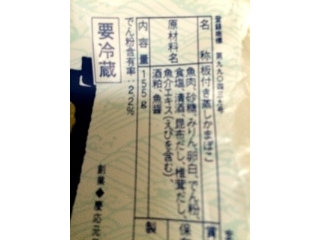 登録商標 第九九〇四三五号
名 称 板付き蒸しかまぼこ
原材料名 魚肉、砂糖、みりん、卵白、でん粉、
食塩、清酒、昆布だし、椎茸だし、
魚介エキス（えびを含む）、
酒粕、魚醤
内容量 155g
でん粉含有率：2.2％
要冷蔵
賞
保
製
創業◆慶応元